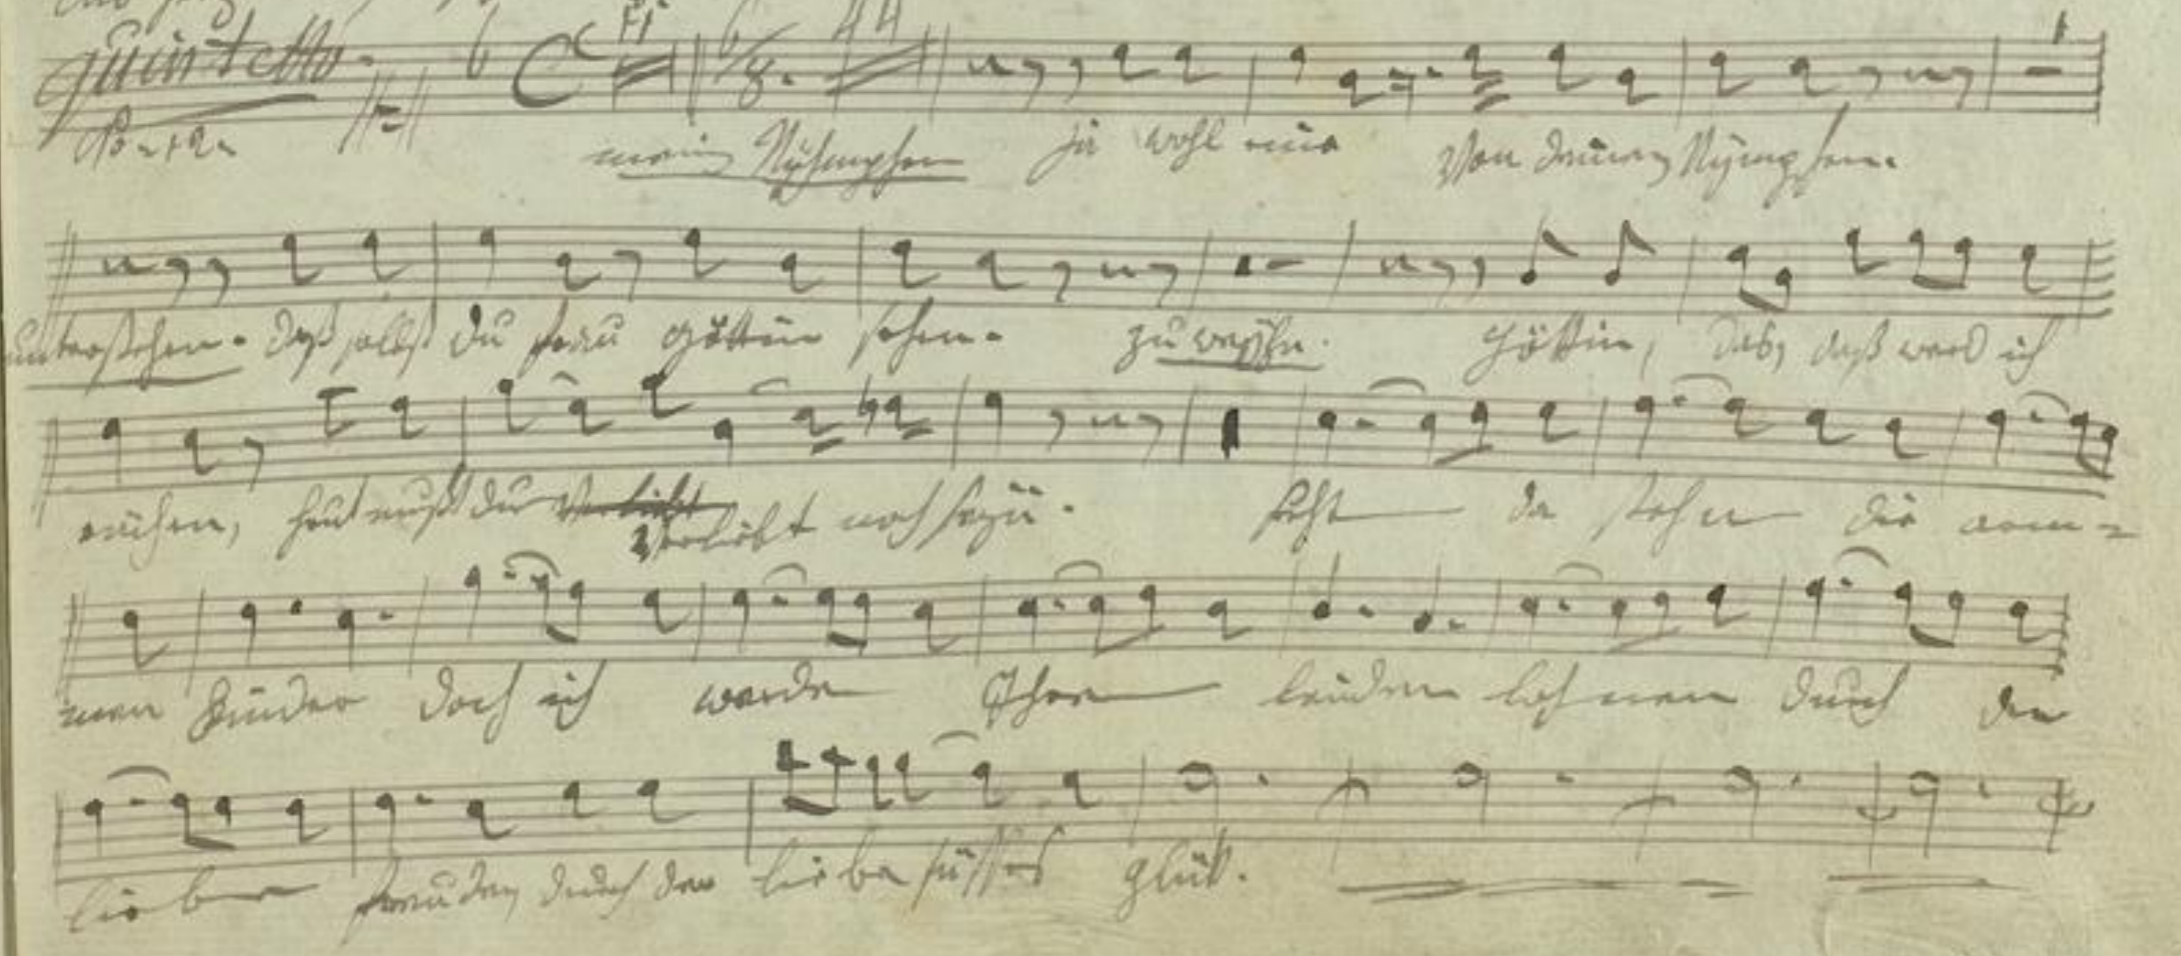 quintetto.
6 C 11 6/8. 44
meine Nÿhmphen ja wohl eine von deinen Nÿmphen.
unterstehen. daß selbst du frau göttin sehen. zu göttin, das, daß werd ich
heut mußt du verliebt verliebt noch seyn. seht da stehn die arm=
men Kinder doch ich werde Ihre leiden lohnen durch der
liebe freuden durch der liebe süsses glük.